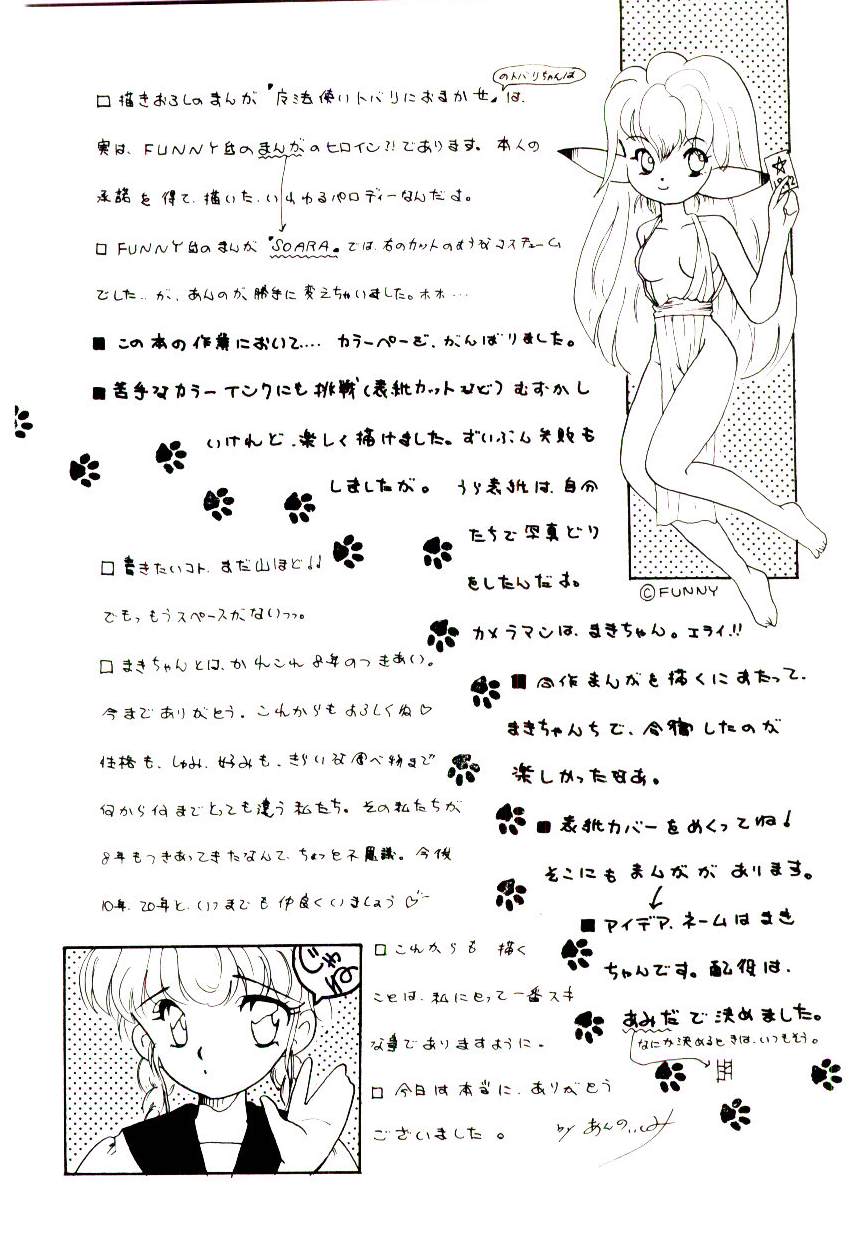 □描きおろしのまんが『魔法使いトバリにおまかせ』は、
のトバリちゃんは
実は、FUNNY白のまんがのヒロイン?!であります。本人の
承諾を得て、描いた、いわゆるパロディーなんだよ。
□FUNNY白のまんが『SOARA』では、右のカットのようなコスチューム
でした‥が、あんのが、勝手に変えちゃいました。ホホ…
■この本の作業において‥‥カラーページを、がんばりました。
■苦手なカラーインクにも挑戦(表紙カットなど)むずかし
いけれど、楽しく描けました。ずいぶん失敗も
しましたが。うら表紙は、自分
たちで写真どり
をしたんだよ。
カメラマンは、まきちゃん。エライ!!
■合作まんがを描くにあたって、
まきちゃんちで、合宿したのが
楽しかったなあ。
■表紙カバーをめくってね!
そこにもまんががあります。
■アイデア、ネームはまき
ちゃんです。配役は、
あみだで決めました。
なにか決めるときは、いつもそう。
□書きたいコト、まだ山ほど!!
でもっもうスペースがないっっ。
□まきちゃんとは、かれこれ8年のつきあい。
今までありがとう。これからもよろしくね♡
性格も、しゅみ、好みも、きらいな食べ物まで
何から何までとっても違う私たち。その私たちが
8年もつきあってきたなんて、ちょっと不思議。今後
10年、20年と、いつまでも仲良くいましょう♡
□これからも描く
ことは、私にとって一番スキ
な事でありますように。
□今日は本当に、ありがとう
ございました。
by あんの‥
じゃあね
©FUNNY